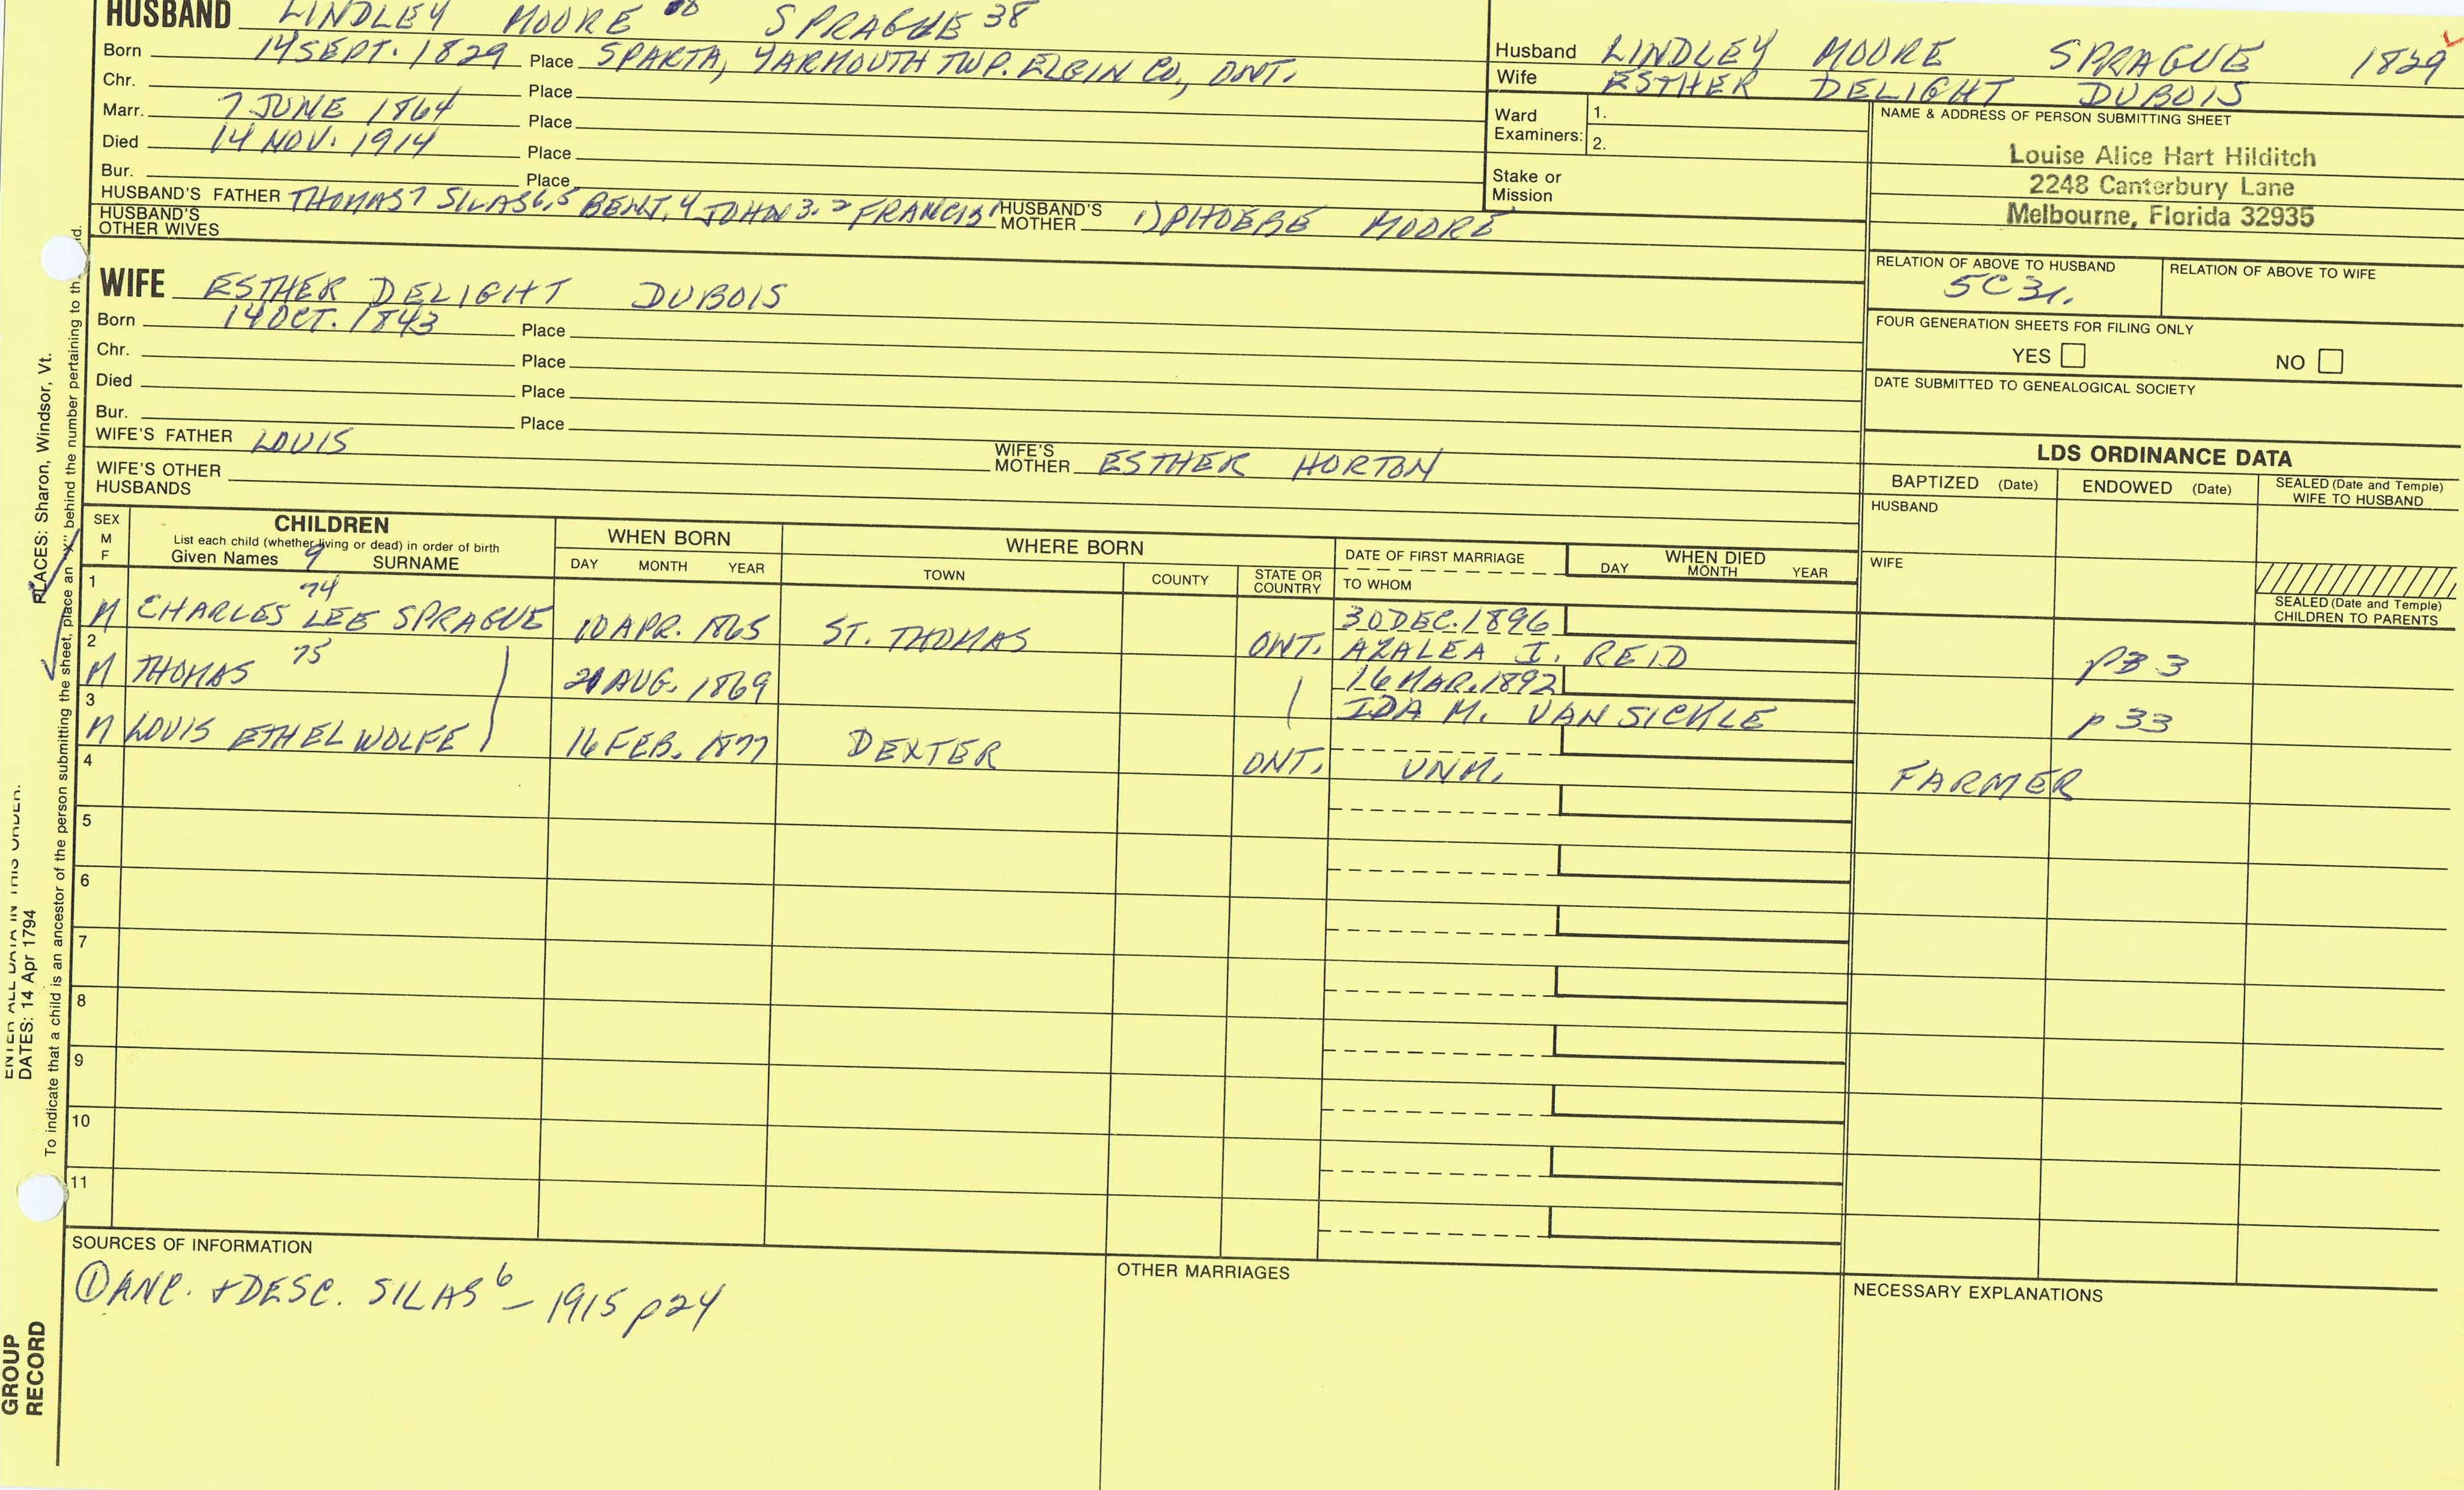 HUSBAND LINDLEY MOORE SPRAGUE 38
Born 14 SEPT. 1829 Place SPARTA, YARMOUTH TWP. ELGIN CO, ONT.
Chr. Place
Marr. 7 JUNE 1864 Place
Died 14 NOV. 1914 Place
Bur. Place
HUSBAND'S FATHER THOMAS7 SILAS6,5 BENJ.4 JOHN3,2 FRANCIS1 HUSBAND'S MOTHER 1) PHOEBE MOORE
HUSBAND'S OTHER WIVES
Husband LINDLEY MOORE SPRAGUE 1829
Wife ESTHER DELIGHT DUBOIS
Ward Examiners: 1.
2.
Stake or Mission
NAME & ADDRESS OF PERSON SUBMITTING SHEET
Louise Alice Hart Hilditch
2248 Canterbury Lane
Melbourne, Florida 32935
RELATION OF ABOVE TO HUSBAND RELATION OF ABOVE TO WIFE
FOUR GENERATION SHEETS FOR FILING ONLY
YES NO
DATE SUBMITTED TO GENEALOGICAL SOCIETY
WIFE ESTHER DELIGHT DUBOIS
Born 14 OCT. 1843 Place
Chr. Place
Died Place
Bur. Place
WIFE'S FATHER LOUIS WIFE'S MOTHER ESTHER HORTON
WIFE'S OTHER HUSBANDS
LDS ORDINANCE DATA
BAPTIZED (Date) ENDOWED (Date) SEALED (Date and Temple) WIFE TO HUSBAND
HUSBAND
WIFE
SEALED (Date and Temple) CHILDREN TO PARENTS
SEX M F
CHILDREN
List each child (whether living or dead) in order of birth
Given Names 9 SURNAME
WHEN BORN
DAY MONTH YEAR
WHERE BORN
TOWN COUNTY STATE OR COUNTRY
DATE OF FIRST MARRIAGE
TO WHOM
WHEN DIED
DAY MONTH YEAR
1 74
M CHARLES LEE SPRAGUE 10 APR. 1865 ST. THOMAS ONT. 30 DEC. 1896
AZALEA I. REID p33
2 75
M THOMAS AUG. 1869 16 MAR. 1892
IDA M. VAN SICKLE p33
3
M LOUIS ETHELWOLFE 16 FEB. 1877 DEXTER ONT. UNM. FARMER
4
5
6
7
8
9
10
11
SOURCES OF INFORMATION
① ANC. + DESC. SILAS6 – 1915 p24
OTHER MARRIAGES
NECESSARY EXPLANATIONS
PLACES: Sharon, Windsor, Vt.
To indicate that a child is an ancestor of the person submitting the sheet, place an "X" behind the number pertaining to
ENTER ALL DATA IN THIS ORDER:
DATES: 14 Apr 1794
GROUP RECORD